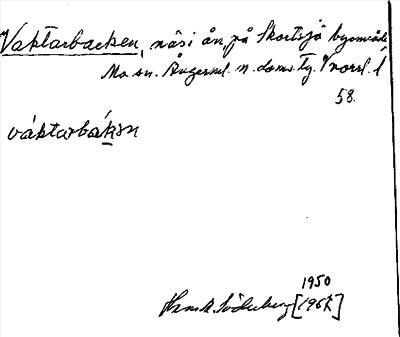 Vaktarbacken, näsi ån på Skortsjö byområde
Mo sn. Ångerml. n. doms. Tg. Norrl. 1
58.
váktarbáksn
1950
Söderberg [196?]